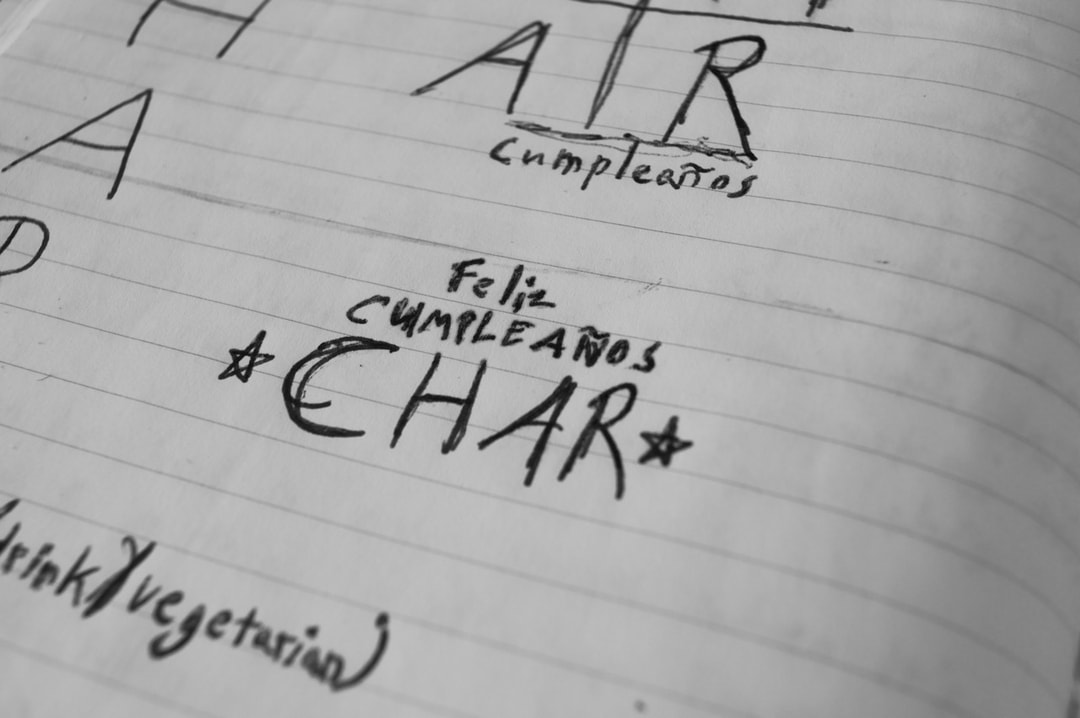 H
A
A I R
Cumpleaños
P
Feliz
CUMPLEAÑOS
CHAR
drink) (vegetarian)